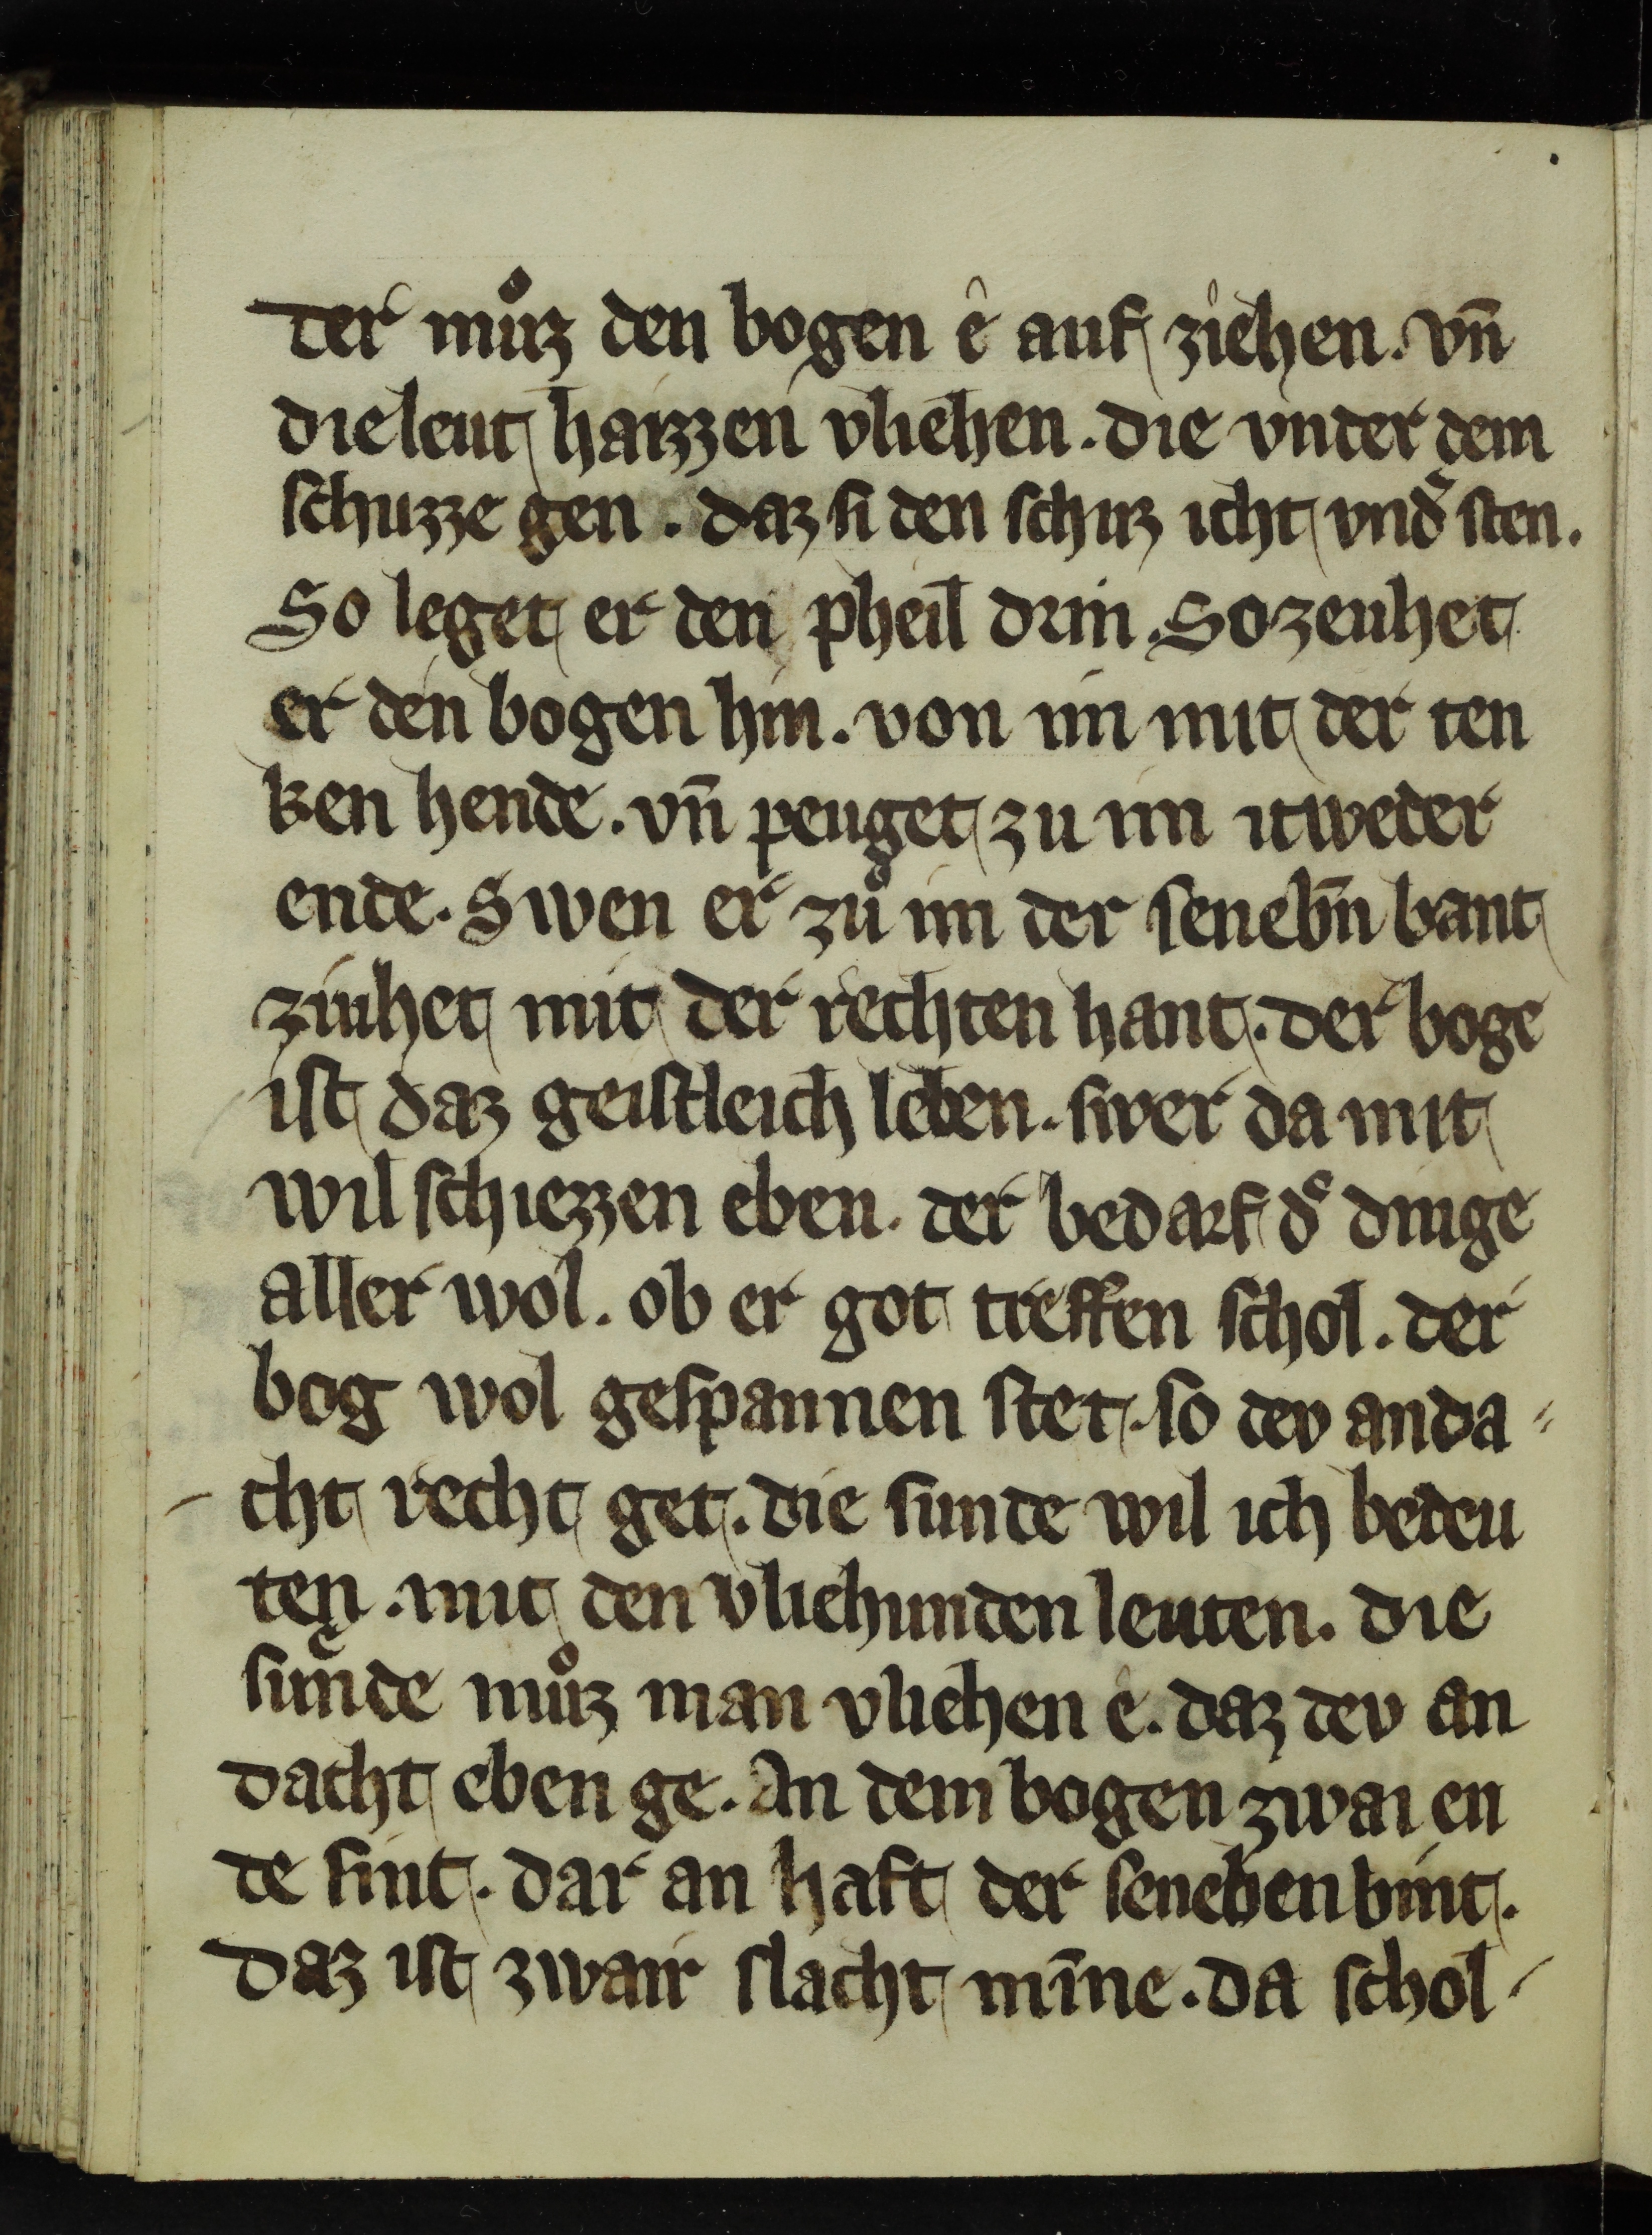 der muͦz den bogen ê auf ziehen. vn̄
die leut haizzen vliehen. die vnder dem
schuzze gen. daz si den schuz icht vnd͛ sten.
So leget er den pheil drin. So zeuhet
er den bogen hin. von im mit der ten
ken hende. vn̄ peuget zu im itweder
ende. Swen er zuͦ im der senebn̄ bant
ziuhet mit der rechten hant. der boge
ist daz geistleich leben. swer da mit
wil schiezzen eben. der bedarf d͛ dinge
aller wol. ob er got treffen schol. der
bog wol gespannen stet. so dev anda⸗
cht recht get. die sunde wil ich bedeu
ten. mit den vliehunden leuten. die
sunde muͦz man vliehen ê. daz dev an
dacht eben ge. An dem bogen zwai en
de sint. dar an haft der seneben bint.
daz ist zwair slacht mīne. da schol